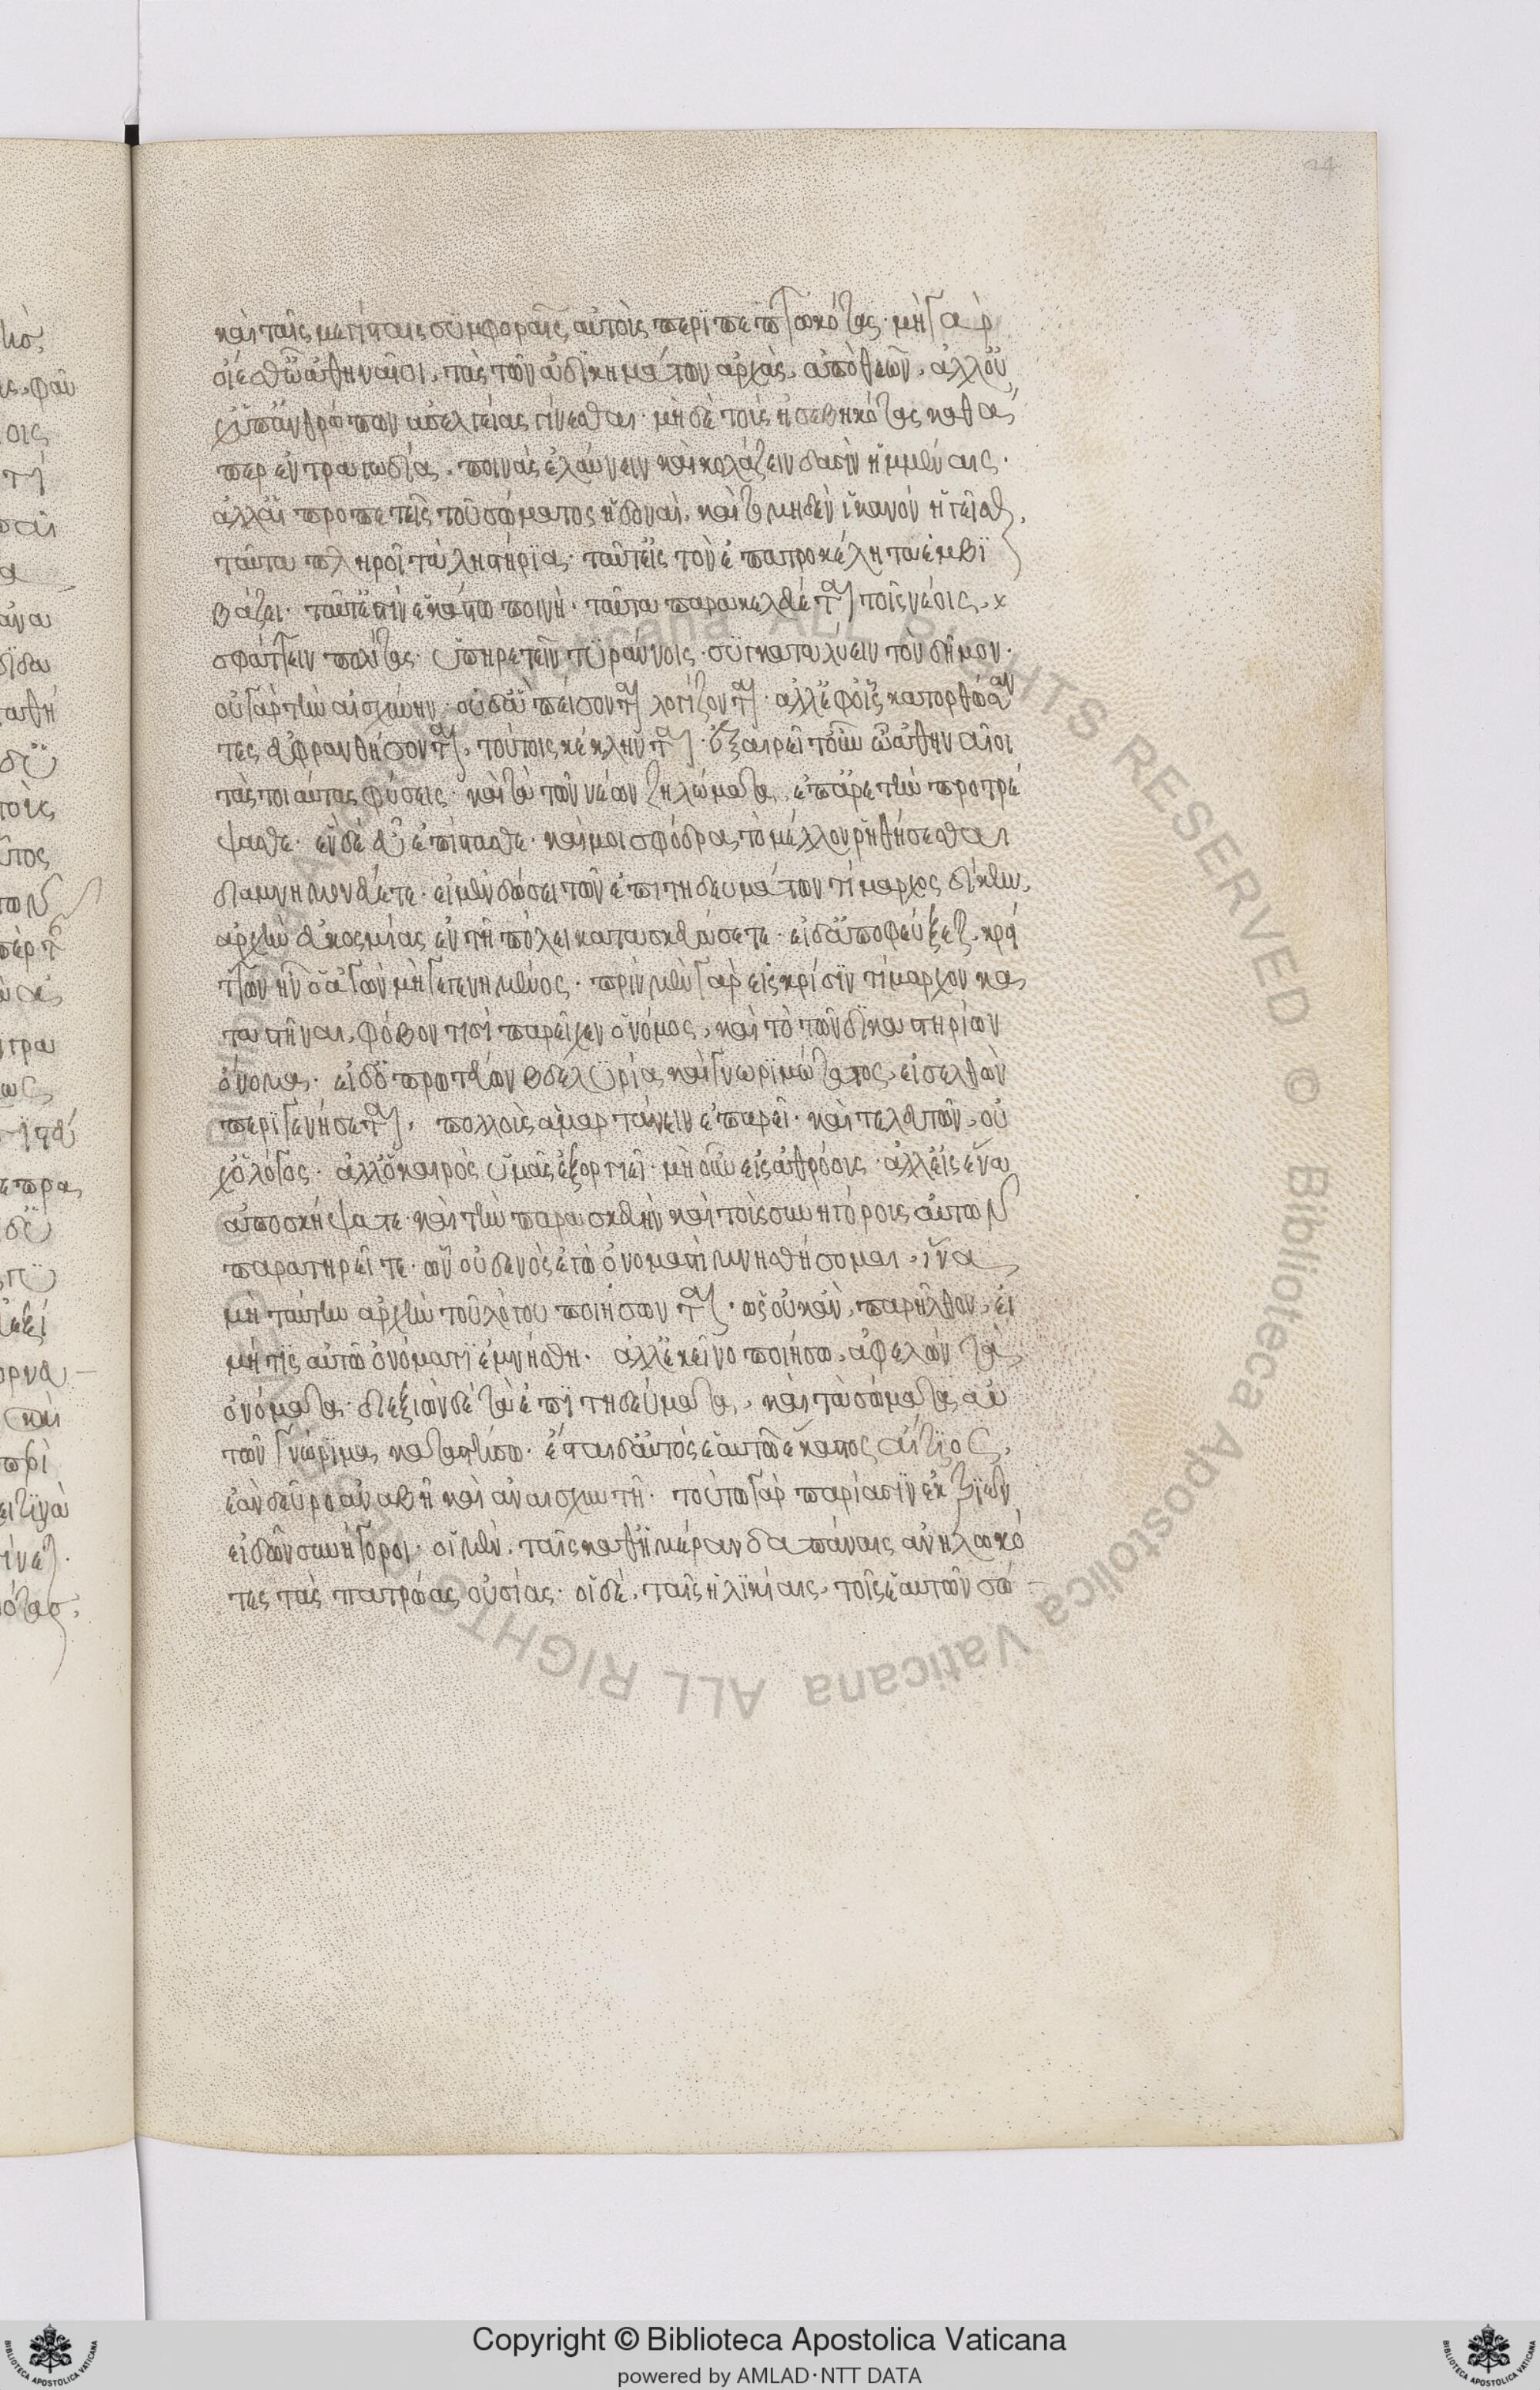 καὶ ταῖς μεγίσταις συμφοραῖς αὐτοὺς περιπεπτωκότας· μὴ γὰρ
οἴεσθε ὦ ἀθηναῖοι, τὰς τῶν ἀδικημάτων ἀρχὰς, ἀπὸ θεῶν, ἀλλ' οὐ
χ' ὑπ' ἀνθρώπων ἀσελγείας γίνεσθαι· μὴ δὲ τοὺς ἠσεβηκότας καθά
περ ἐν τραγωδίαις, ποινὰς ἐλαύνειν καὶ κολάζειν δασὶν ἡμμέναις·
ἀλλ' αἱ προπετεῖς τοῦ σώματος ἡδοναὶ, καὶ τὸ μηδὲν ἱκανὸν ἡγεῖσθαι,
ταῦτα πληροῖ τὰ λῃστήρια· ταῦτ' εἰς τὸν ἐπακτροκέλητα ἐμβι
βάζει· ταῦτ' ἔστιν ἑκάστω ποινὴ· ταῦτα παρακελεύεται τοῖς νέοις,
σφάττειν πολίτας· ὑπηρετεῖν τυράννοις· συγκαταλύειν τὸν δῆμον·
οὐ γὰρ τὴν αἰσχύνην· οὐδ' ἃ πείσονται λογίζονται· ἀλλ' ἐφ' οἷς κατορθώσαν
τες εὐφρανθήσονται, τούτοις κεκλημένται· ἐξαιρεῖτ' οὖν ὦ ἀθηναῖοι
τὰς τοιαύτας φύσεις· καὶ τὰ τῶν νέων ζηλώματα, ἐπ' ἀρετὴν προτρέ
ψασθε· εὖ δὲ ἐπίστασθε· καί μοι σφόδρα τὸ μέλλον ῥηθήσεσθαι
διαμνημονεύετε· εἰ μὲν δώσει τῶν ἐπιτηδευμάτων τίμαρχος δίκην,
ἀρχὴν εὐκοσμίας ἐν τῇ πόλει κατασκευάσετε· εἰ δ' ἀποφεύξεται, κρεί
ττων ἦν ὁ ἀγὼν μὴ γεγενημένος· πρὶν μὲν γὰρ εἰς κρίσιν τίμαρχον κα
ταστῆναι, φόβον τισὶ παρεῖχεν ὁ νόμος, καὶ τὸ τῶν δικαστηρίων
ὄνομα· εἰ δ' ὁ πρωτεύων βδελυρία καὶ γνωριμώτατος, εἰσελθὼν
περιγενήσεται, πολλοὺς ἁμαρτάνειν ἐπαρεῖ· καὶ τελευτῶν, οὐ
χ' ὁ λόγος· ἀλλ' ὁ καιρὸς ὑμᾶς ἐξοργιεῖ· μὴ οὖν εἰς ἀθρόους· ἀλλ' εἰς ἕνα
ἀποσκήψατε· καὶ τὴν παρασκευὴν καὶ τοὺς συνηγόρους αὐτῶν
παρατηρεῖτε· ὧν οὐδενὸς ἐγὼ ὀνομαστὶ μνησθήσομαι, ἵνα
μὴ ταύτην ἀρχὴν τοῦ λόγου ποιήσωνται· ὡς οὐκ ἂν παρῆλθον, εἰ
μή τις αὐτῶ ὀνομαστὶ ἐμνήσθη· ἀλλ' ἐκεῖνο ποιήσω, ἀφελὼν τὰ
ὀνόματα· διεξιὼν δὲ τὰ ἐπιτηδεύματα, καὶ τὰ σώματα αὐ
τῶν γνώριμα καταστήσω· ἔσται δ' αὐτὸς ἑαυτῶ ἕκαστος αἴτιος,
ἐὰν δεῦρο ἀναβῇ καὶ ἀναισχυντῇ· τούτω γὰρ παρίασιν ἐκ τριῶν
εἰδῶν συνήγοροι· οἱ μὲν, ταῖς καθ' ἡμέραν δαπάναις ἀνηλωκό
τες τὰς πατρώας οὐσίας· οἱ δέ, ταῖς ἡλικίαις, τοῖς ἑαυτῶν σώ
24
Copyright © Biblioteca Apostolica Vaticana
powered by AMLAD·NTT DATA